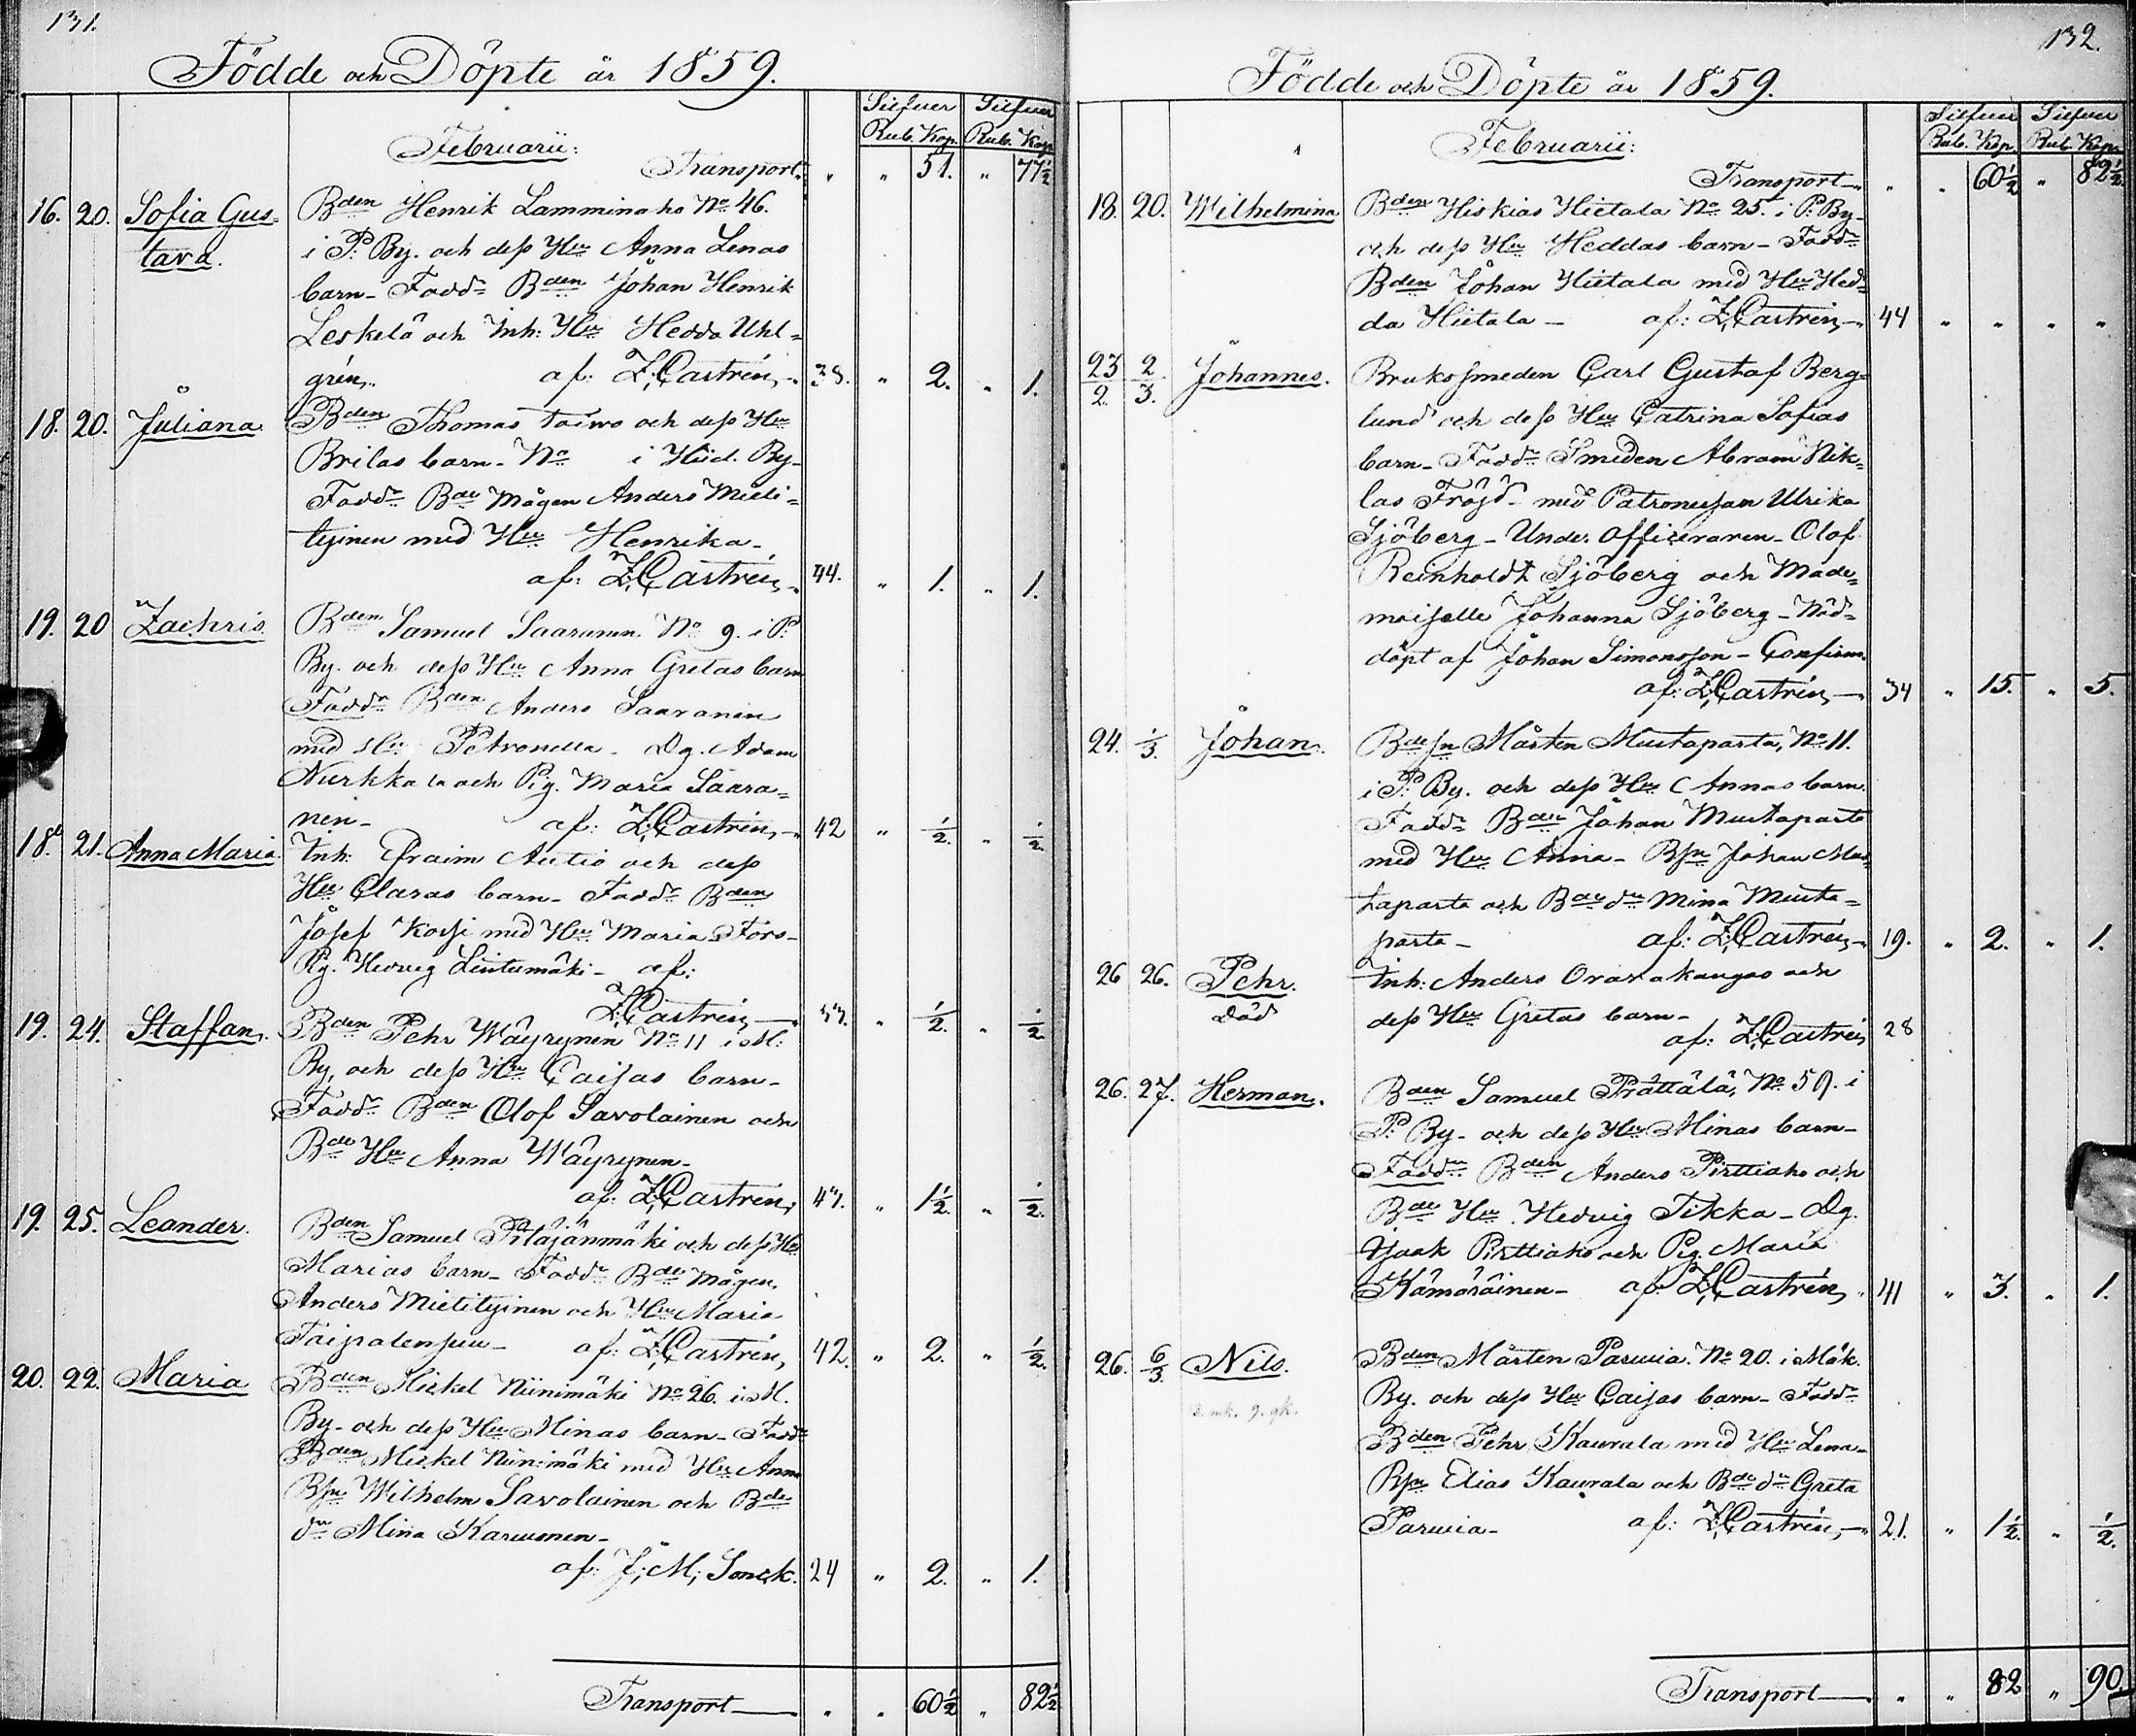 131.
Födde och Döpte år 1859.
Silfver Silfver
Rub. Kop. Rub. Kop.
Februarii:
Transport „ „ 51. „ 77½
16. 20. Sofia Gus- Bden Henrik Lamminaho No 46.
tava. i P. By. och dess Hu Anna Lenas
barn- Fadd. Bden Johan Henrik
Leskelä och Inh: Hu Hedda Uhl=
grén, af: Z; Castrén, 38. „ 2. „ 1.
18. 20. Juliana. Bden Thomas Taivo och dess Hu
Britas barn- No i Hvd. By-
Fadd. Bde Mågen Anders Mieli=
tyinen med Hu Henrika-
af: Z; Castrén, 44. „ 1. „ 1.
19. 20 Zachris. Bden Samuel Saaranen No 9. i P.
By. och dess Hu Anna Gretas barn
Fadd. Bden Anders Saaranen
med Hu Petronella- Dg. Adam
Nurkkala och Pig. Maria Saara=
nen- af: Z; Castrén, 42 „ ½. „ ½.
18. 21. Anna Maria. Inh: Efraim Autio och dess
Hu Claras barn- Fadd. Bden
Josef Kossi med Hu Maria
Pig. Hedvig Lintumäki- af:
Z; Castrén, „ ½. „ ½
19. 24. Staffan. Bden Pehr Wäyrynen No 11 i M.
By, och dess Hu Caisas barn-
Fadd. Bden Olof Savolainen och
Bde Hu Anna Wäyrynen-
af: Z; Castrén, „ 1½. „ ½.
19. 25. Leander. Bden Samuel Pitäjänmäki och dess Hu
Marias barn- Fadd. Bde Mågen,
Anders Mielityinen och Hu Maria
Taipalensuu- af: Z; Castrén, 42. „ 2. „ ½.
20. 22. Maria Bden Mickel Niinimäki No 26. i M.
By- och dess Hu Minas barn- Fadd.
Bden Mickel Niinimäki med Hu Anna
Bsn Wilhelm Savolainen och Bde
dr Mina Karvonen-
af: J; M; Sonck. 24 „ 2. „ 1.
Transport „ „ 60½ „ 82½
132.
Födde och Döpte år 1859.
Silfver Silfver
Rub. Kop. Rub. Kop.
Februarii:
Transport „ „ 60½ „ 82½.
18. 20. Wilhelmina Bden Hiskias Hietala No 25. i P. By-
och dess Hu Heddas barn- Fadd.
Bden Johan Hietala med Hu Hed=
da Hietala- af: Z; Castrén, 44 „ „ „ „
23/2. 2/3. Johannes. Bruksmeden Carl Gustaf Berg=
lund och dess Hu Catrina Sofias
barn- Fadd. Smeden Abram Nik=
las Fröjd- med Patronessan Ulrika
Sjöberg- Under officeraren- Olof
Reinholdt Sjöberg och Made=
moiselle Johanna Sjöberg- Nöd=
döpt af Johan Simonsson- Confirm.
af: Z; Castrén, 34 „ 15. „ 5.
24. 1/3. Johan. Bdesn Mårten Mustaparta, No 11.
i P. By. och dess Hu Annas barn.
Fadd. Bden Johan Mustaparta
med Hu Anna- Bsn Johan Mus=
taparta och Bde dr Mina Musta=
parta- af: Z; Castrén, 19. „ 2. „ 1.
26 26. Pehr. Inh: Anders Oravakangas och
död dess Hu Gretas barn-
af: Z; Castrén, 28
26. 27. Herman. Bden Samuel Prättälä, No 59. i
P. By- och dess Hu Minas barn-
Fadd. Bden Anders Pirttiaho och
Bde Hu Hedvig Tikka- Dg.
Isaak Pirttiaho och Pig. Maria
Hämäräinen- af: Z; Castrén, 41 „ 3. „ 1.
26. 6/3. Nils. Bden Mårten Parvia. No 20. i Mäk.
By. och dess Hu Caisas barn- Fadd.
Bden Pehr Kaurala med Hu Lena-
Bsn Elias Kaurala och Bde dr Greta
Parvia- af: Z; Castrén, 21. „ 1½. „ ½.
Transport „ „ 82 „ 90.